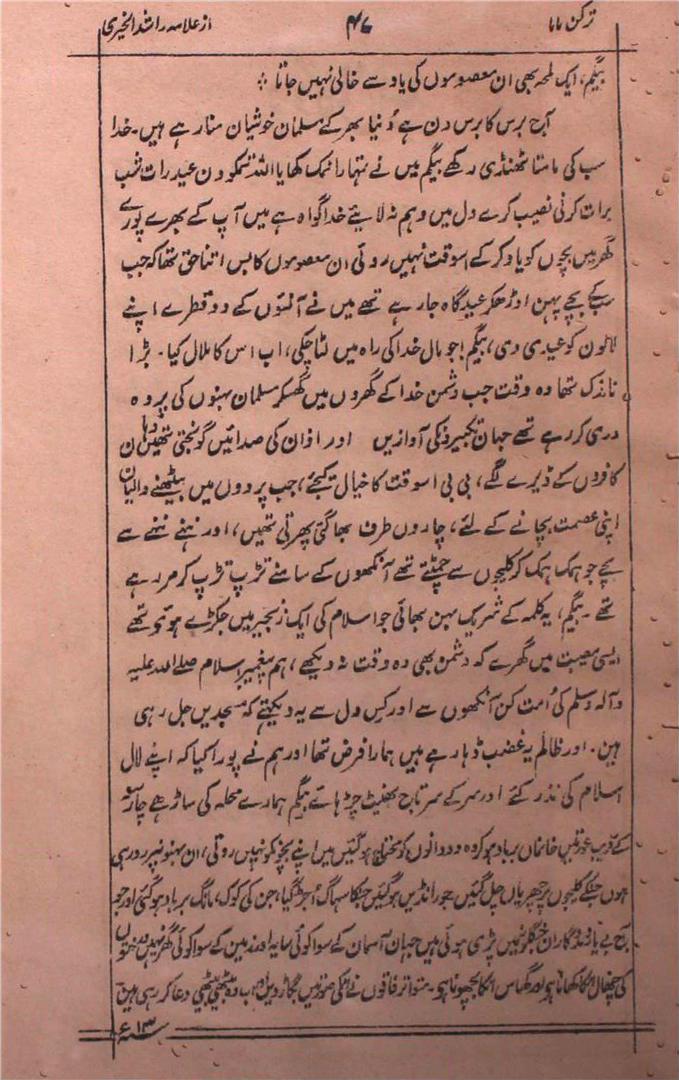 ترکن ماما ۴۷ از علامہ راشد الخیری
بیگم، ایک لمحہ بھی ان معصوموں کی یاد سے خالی نہیں جاتا
آج برس کا برس دن ہے دُنیا بھر کے مسلمان خوشیان منا رہے ہیں۔ خدا
سب کی مامتا ٹھنڈی رکھے بیگم میں نے تمہارا نمک کھایا اللہ تمکو دن عید رات شب
برات کرنی نصیب کرے دل میں وہم نہ لایئے خدا گواہ ہے میں آپ کے بھرے پورے
گھر میں بچوں کو یاد کر کے اسوقت نہیں روئی ان معصوموں کا بس اتنا حق تھا کہ جب
سب کے بچے پہن اوڑھکر عیدگاہ جا رہے تھے میں نے آنسوں کے دو قطرے اپنے
لالون کو عیدی دی، بیگم! جو مال خدا کی راہ میں لٹا چکی، اب اس کا ملال کیا۔ بڑا
نازک تھا وہ وقت جب دشمن خدا کے گھروں میں گھسکر مسلمان بہنوں کی پردہ
دری کر رہے تھے جہان تکبیر کی آوازیں اور اذان کی صدائیں گونجتی تھیں وہان
کافروں کے ڈیرے لگے، بی بی اسوقت کا خیال کیجئے، جب پردوں میں بیٹھنے والیان
اپنی عصمت بچانے کے لئے، چاروں طرف بھاگتی پھرتی تھیں، اور ننہے ننہے سے
بچے جو ہمک ہمک کر کلیجوں سے چمٹتے تھے آنکھوں کے سامنے تڑپ تڑپ کر مر رہے
تھے۔ بیگم، یہ کلمہ کے شریک بہن بھائی جو اسلام کی ایک زنجیر میں جکڑے ہوئے تھے
ایسی مصیبت میں گھرے کہ دشمن بھی وہ وقت نہ دیکھے، ہم پیغمبر اسلام صلے اللہ علیہ
وآلہ وسلم کی اُمت کن آنکھوں سے اور کس دل سے یہ دیکھتے کہ مسجدیں جل رہی
ہین۔ اور ظالم یہ غضب ڈہا رہے ہیں ہمارا فرض تھا اور ہم نے پورا کیا کہ اپنے لال
اسلام کی نذر کئے اور سر کے سرتاج بھینٹ چڑہائے بیگم ہمارے محلہ کی ساڑھے چار سو
کے قریب عورتیں خانماں برباد ہو کر دو دو دانوں کو محتاج ہو گئیں میں اپنے بچونکو نہیں روتی، ان بہنونپر رو رہی
ہوں جنکے کلیجوں پر چھریاں چل گئیں جو رانڈیں ہو گئیں جنکا سہاگ اُجڑ گیا، جن کی کوک، مانگ برباد ہو گئی اور جو
آج بے یار و مددگار ان جنگلونمیں پڑی ہوئی ہیں جہان آسمان کے سوا کوئی سایہ اور زمین کے سوا کوئی گھر نہیں
کی چھال انکا کھانا ہے اور گھاس انکا بچھونا ہے۔ متواتر فاقوں نے انکی صورتیں بگاڑ دیں اب وہ بیٹھی بیٹھی دعا کر رہی ہین